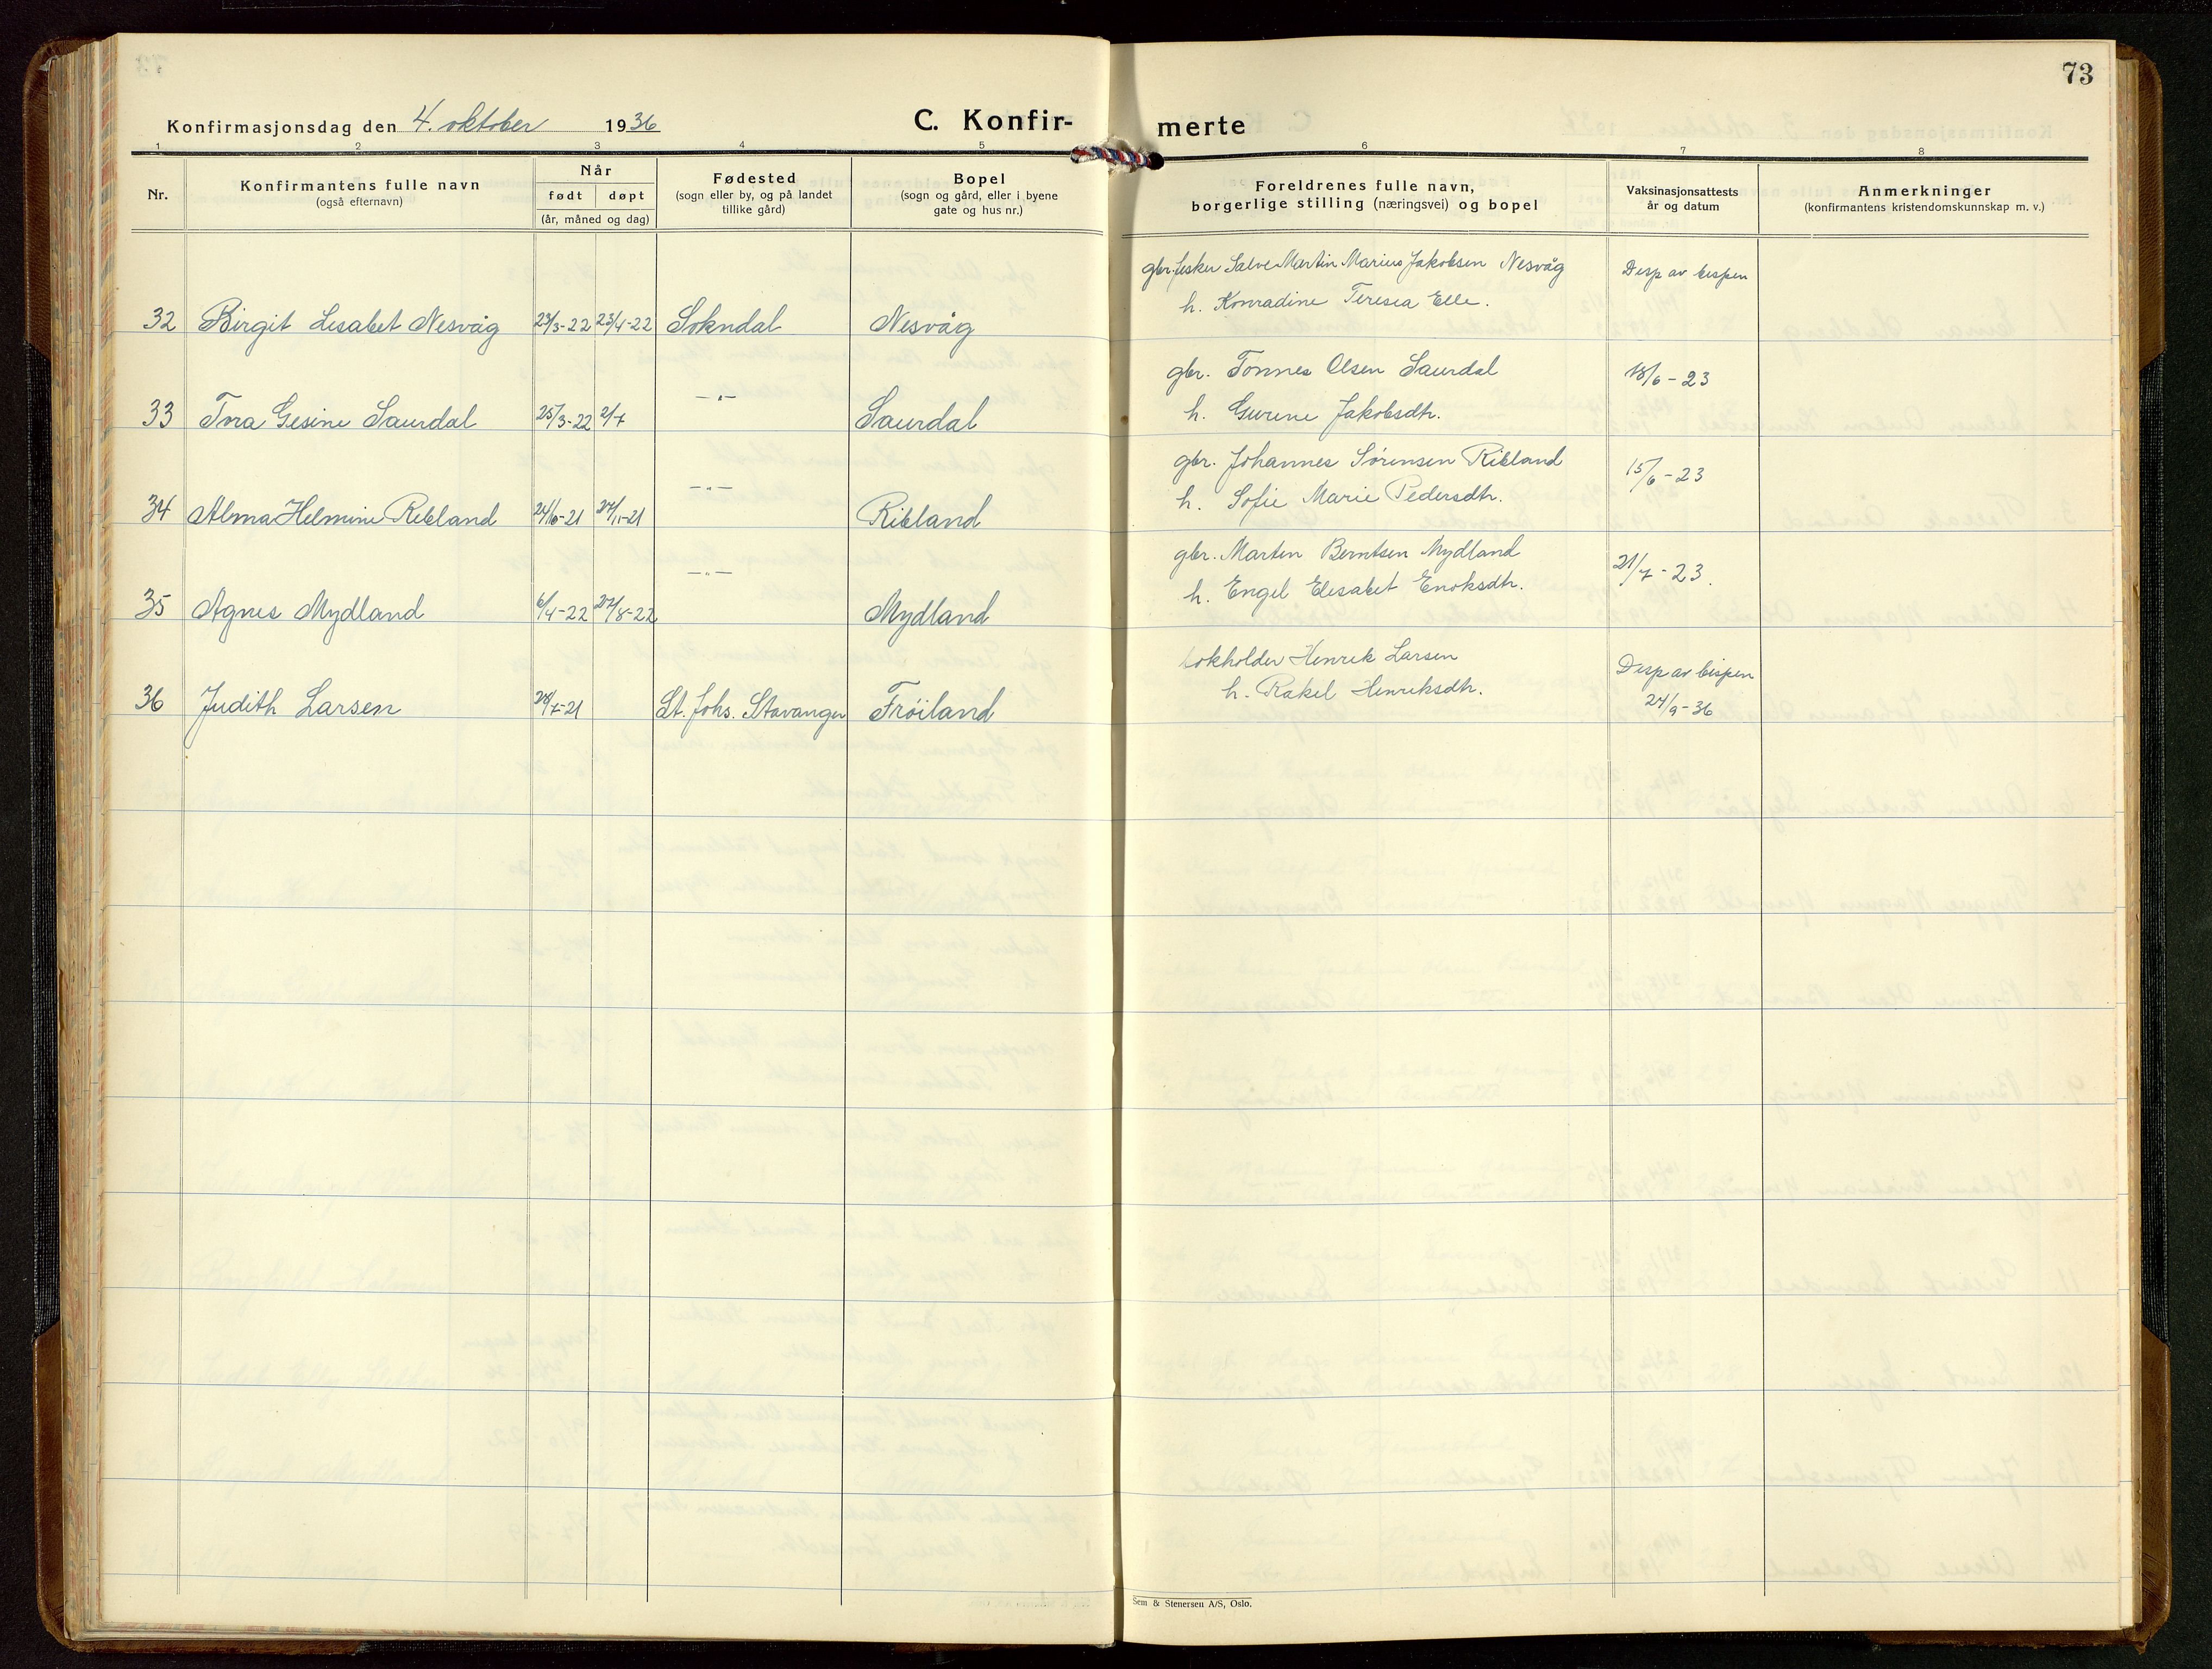 73
Konfirmasjonsdag den 4. oktober 1936
C. Konfir-
merte
1 2 3 4 5 6 7 8
Nr.
Konfirmantens fulle navn
(også efternavn)
Når
født døpt
(år, måned og dag)
Fødested
(sogn eller by, og på landet
tillike gård)
Bopel
(sogn og gård, eller i byene
gate og hus nr.)
Foreldrenes fulle navn,
borgerlige stilling (næringsvei) og bopel
Vaksinasjonsattests
år og datum
Anmerkninger
(konfirmantens kristendomskunnskap m. v.)
gbr. fisker Salve Martin Marius Jakobsen Nesvåg Desp av bispen
h. Konradine Teresia Elle.
32 Birgit Lisabet Nesvåg 23/3-22 23/4-22 Sokndal Nesvåg
gbr. Tønnes Olsen Saurdal 18/6-23
h. Gurine Jakobsdtr.
33 Tora Gesine Saurdal 25/3-22 2/7 —"— Saurdal
gbr. Johannes Sørensen Ribland 15/6-23
h. Sofie Marie Pedersdtr.
34 Alma Helmine Ribland 24/10-21 27/11-21 —"— Ribland
gbr. Marten Berntsen Mydland 21/7-23.
h. Engel Elisabet Enoksdtr.
35 Agnes Mydland 6/4-22 27/8-22 —"— Mydland
bokholder Henrik Larsen Desp av bispen
h. Rakel Henriksdtr. 24/9-36
36 Judith Larsen 28/7-21 St. Johs. Stavanger Frøiland
Sem & Stenersen A/S, Oslo.